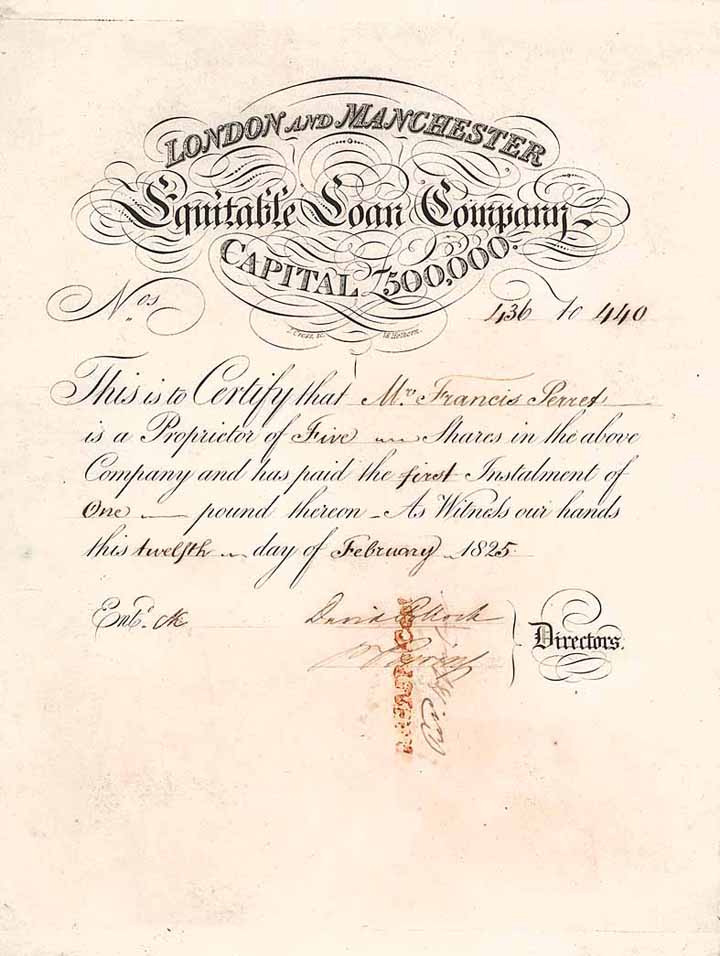 LONDON AND MANCHESTER
Equitable Loan Company
CAPITAL £500,000.
Nos 436 to 440
This is to Certify that Mr. Francis Perret
is a Proprietor of Five Shares in the above
Company and has paid the first Instalment of
One pound thereon - As Witness our hands
this twelfth day of February 1825
Entd.
David Pollock
Directors.